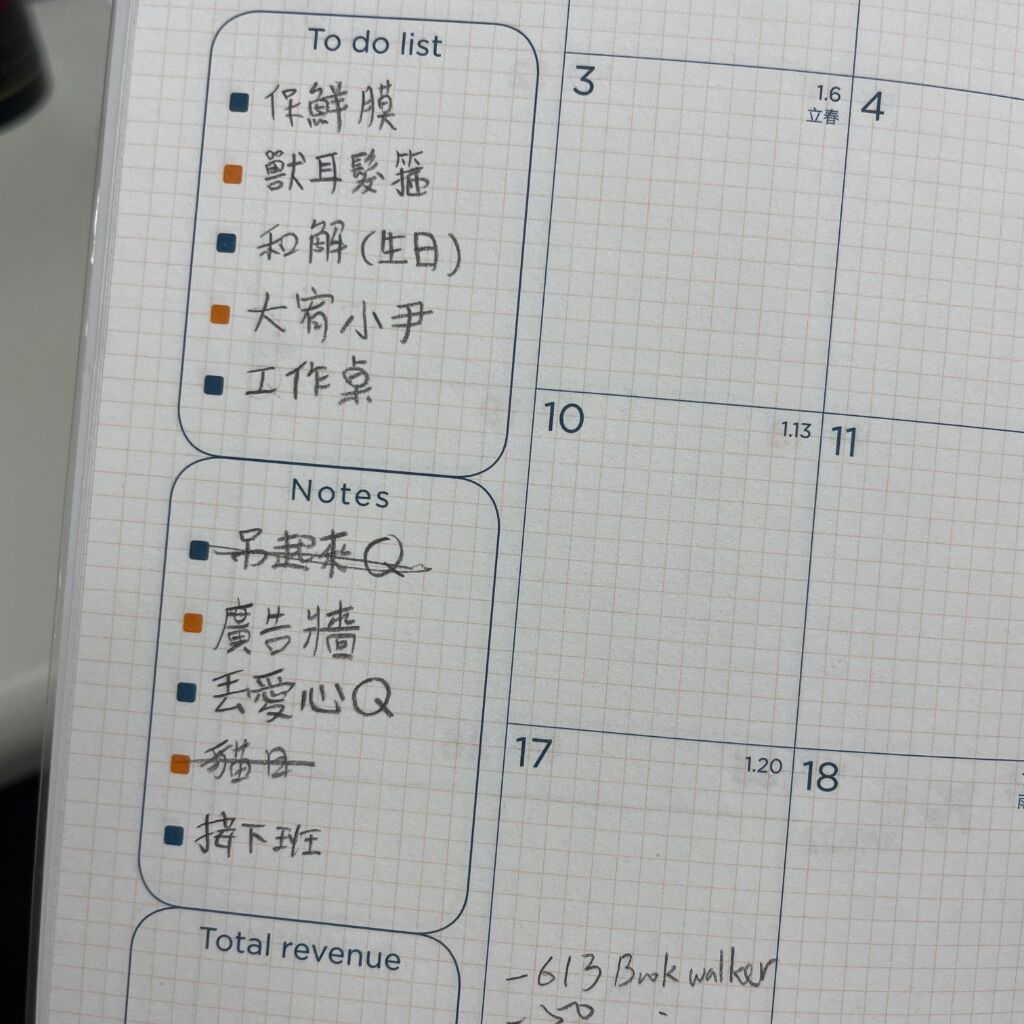 To do list
保鮮膜
獸耳髮箍
和解(生日)
大宥小尹
工作桌
Notes
吊起來Q
廣告牆
丟愛心Q
貓日
接下班
Total revenue
3
1.6
立春
4
10
1.13
11
17
1.20
18
雨
-613 Bookwalker
-50